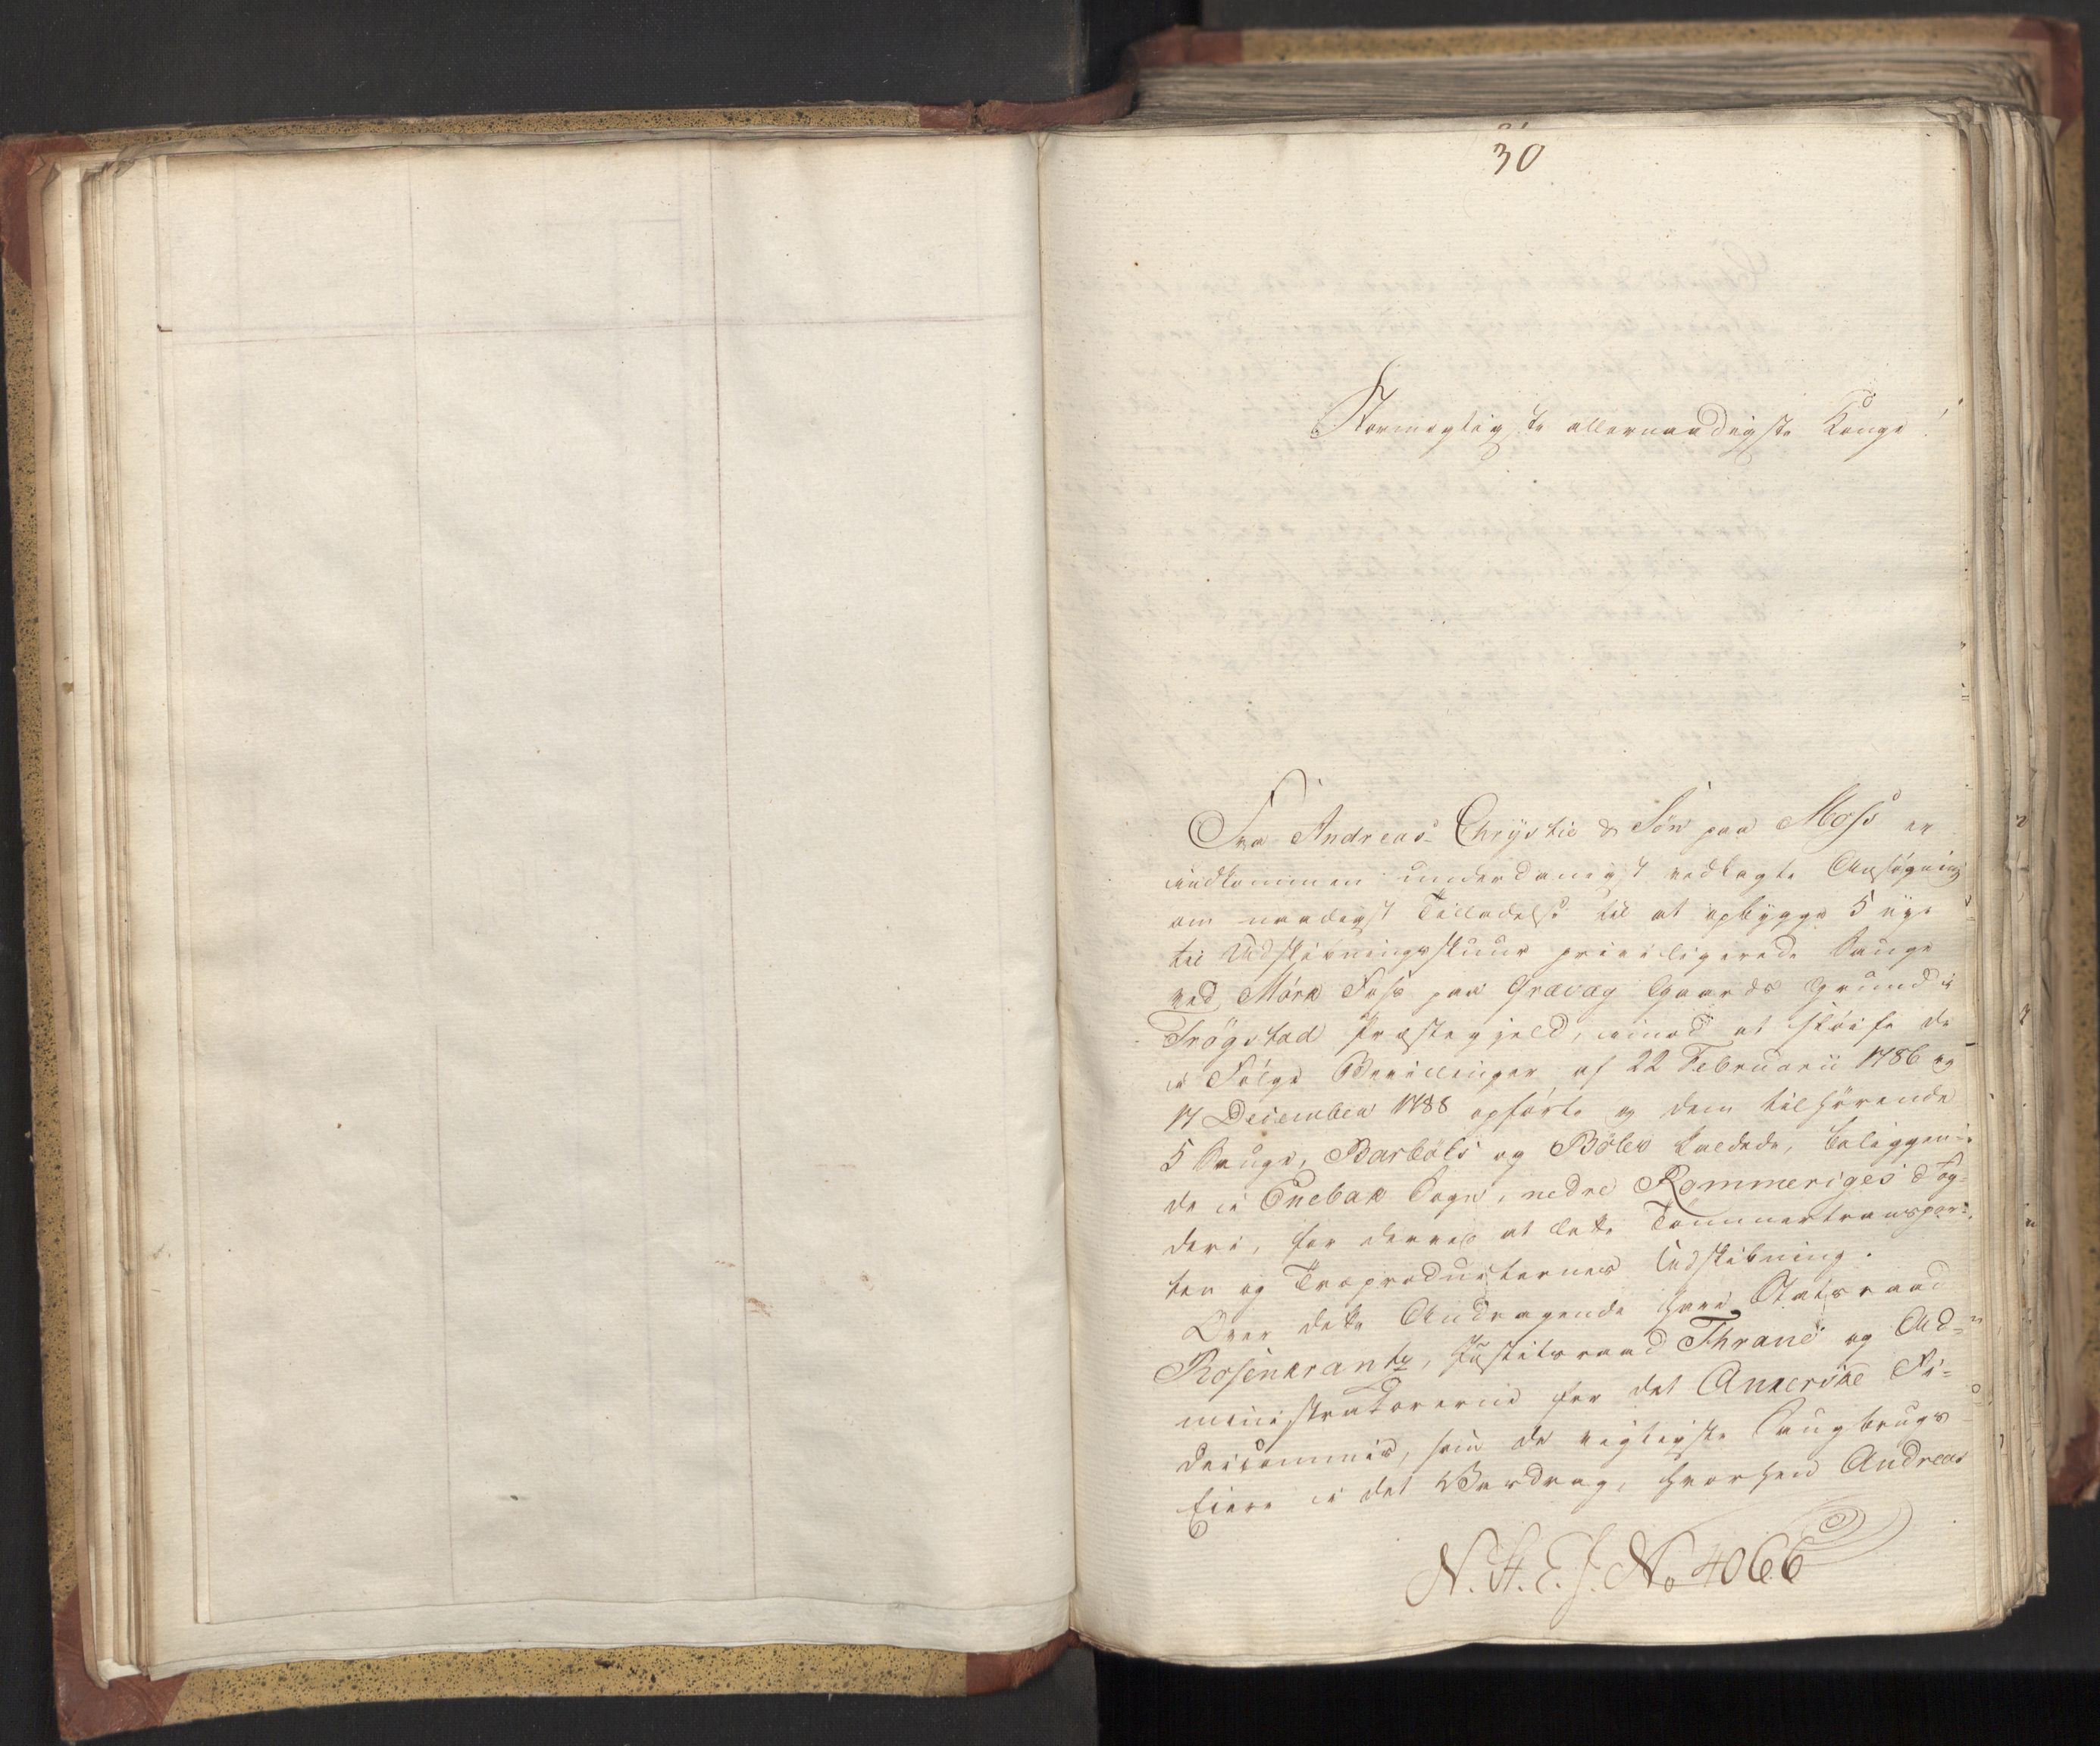 30
Stormægtigste allernaadigste Konge!
Fra Andreas Chrystie & Søn paa Moss er
indkommen underdanigst vedlagte Ansøgning
om naadigst Tilladelse til at opbygge 5 nye
til Udskibningsskuur priviligerede Sauge
ved Mörk Foss paa Grævag Gaards Grund i
Trögstad Præstegjeld, imod at sløife de
i Følge Bevillinger af 22 Februarii 1786 og
17 December 1788 opførte og dem tilhørende
5 Sauge, Barbøls og Böler kaldede, beliggen-
de i Enebak Sogn, nedre Rommeriges Fog-
deri, for derved at lette Tømmertranspor-
ten og Træproducternes Udskibning.
Over dette Andragende have Statsraad
Rosenkrantz, Justitsraad Thrane og Ad-
ministratorerne for det Ankerske Fi-
deicommis, som de vigtigste Saugbrugs-
Eiere i det Vasdrag, hvorhen Andreas
N. St. E. J. No 4066